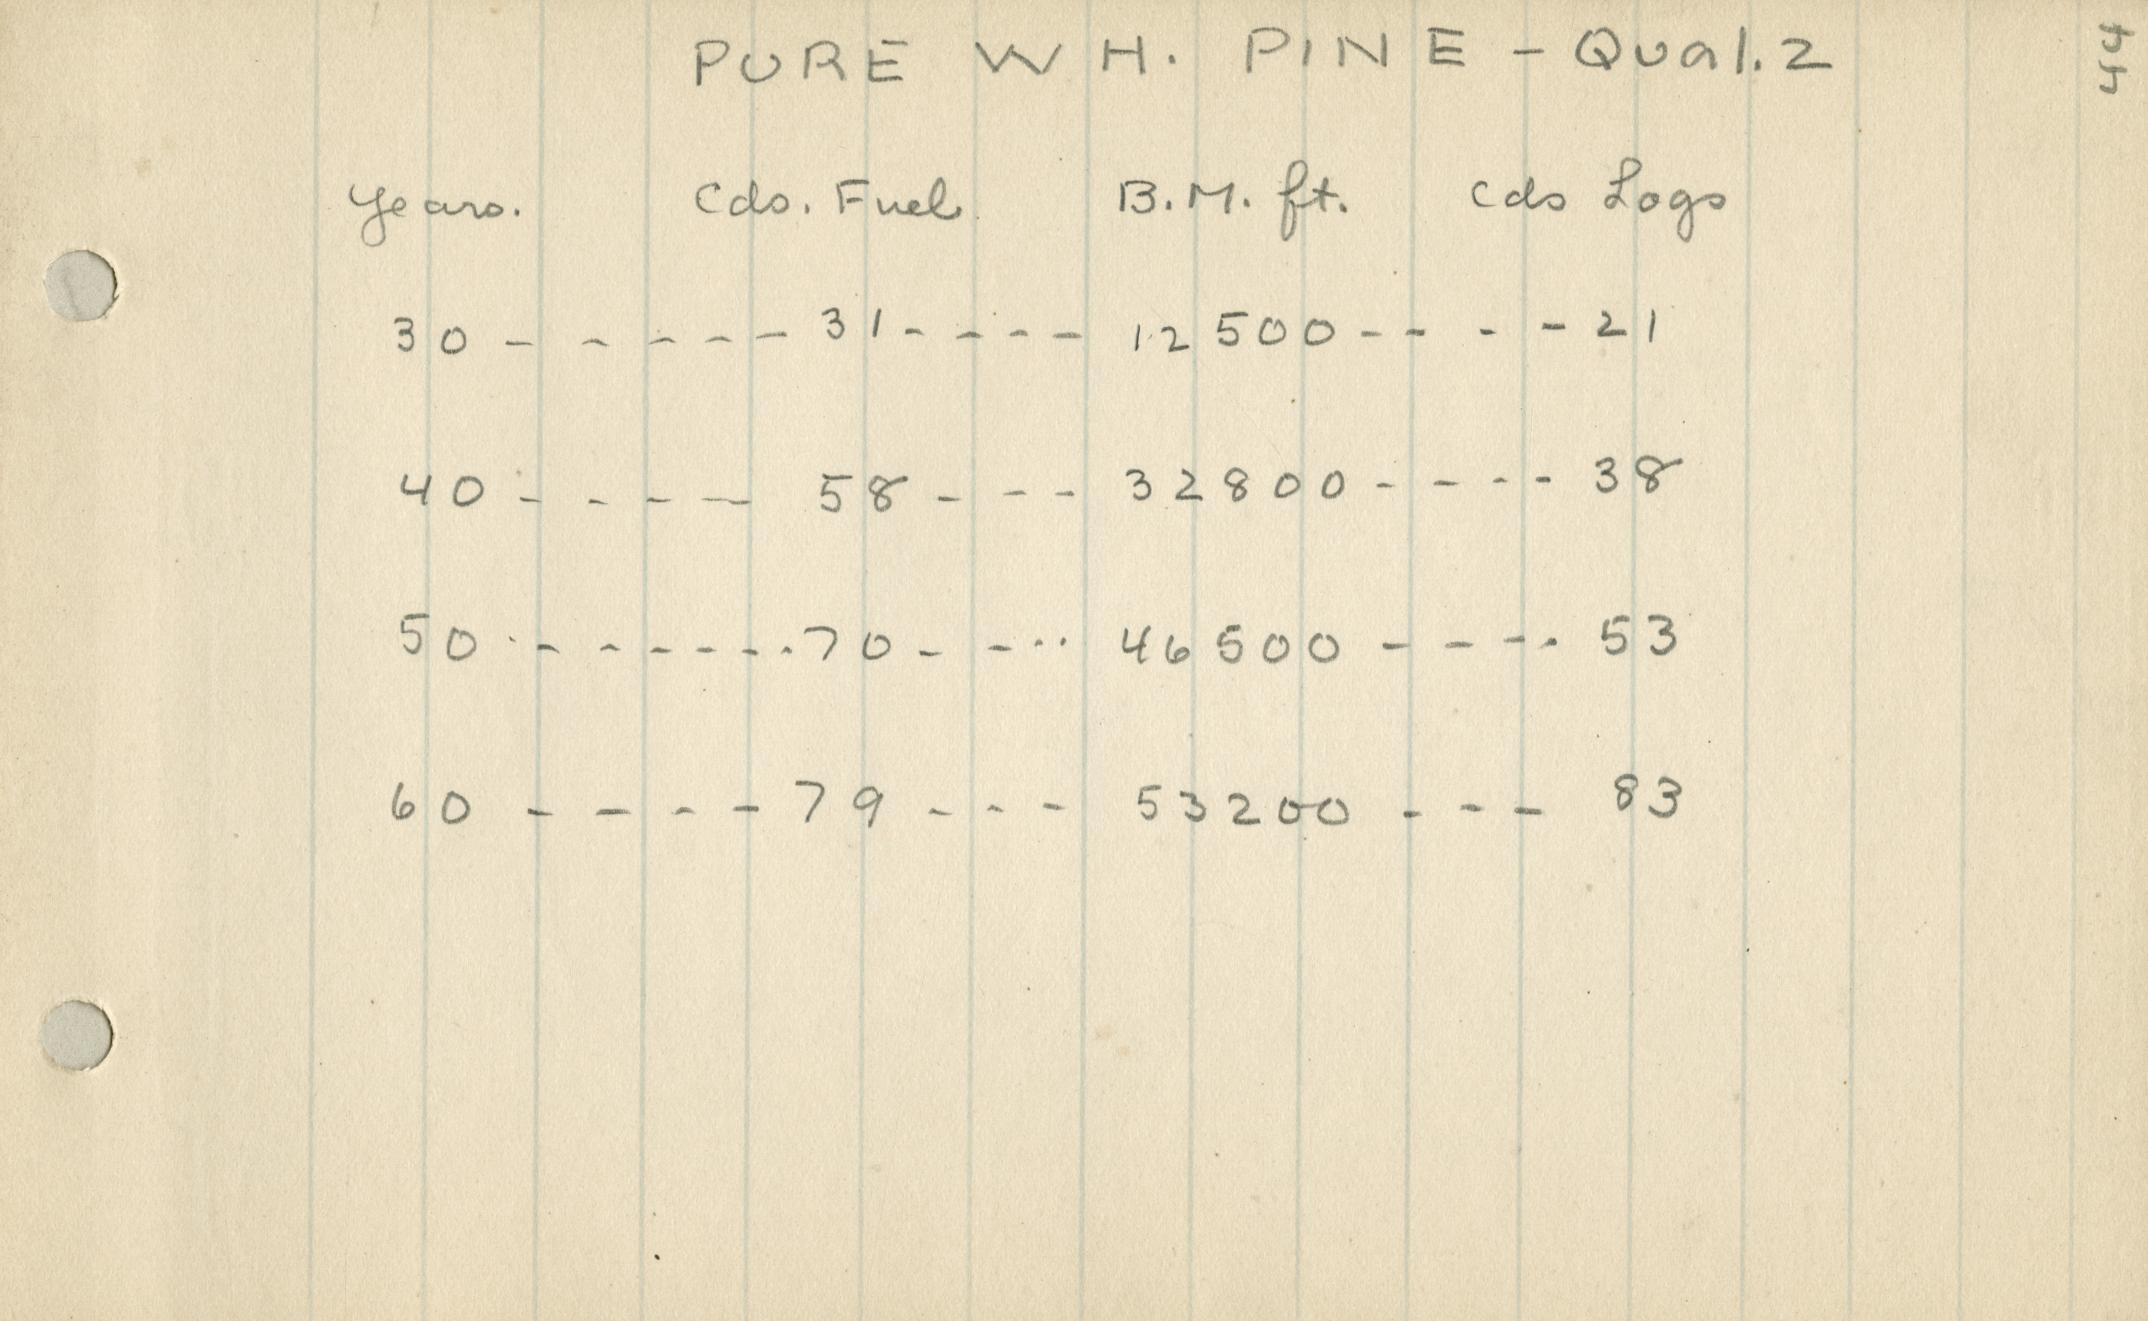 PURE WH. PINE - Qual. 2
44
Years. Cds. Fuel B.M. ft. Cds Logs
30 - - - - - - 31 - - - - 12500 - - - - 21
40 - - - - 58 - - - 32800 - - - - 38
50 - - - - - - - 70 - - - - 46500 - - - - 53
60 - - - - - 79 - - - 53200 - - - 83